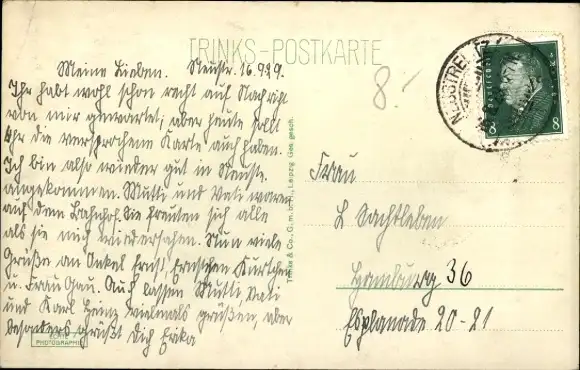 TRINKS-POSTKARTE
Meine Lieben. Neustr. 16.9.29.
Ihr habt wohl schon recht auf Nachricht
von mir gewartet, aber heute sollt
Ihr die versprochene Karte auch haben.
Ich bin also wieder gut in Neustre.
angekommen. Mutti und Vati waren
auf dem Bahnhof. Sie freuten sich alle
als sie mich wiedersahen. Nun viele
Grüße an Onkel Ernst, Ernschen Kurtchen
u. Frau Gau. Auch lassen Mutti, Vati
und Karl Heinz vielmals grüßen, aber
besonders grüßt Dich Erika
PHOTOGRAPHIE
Trinks & Co., G. m. b. H., Leipzig Ges. gesch.
8.-
NEUSTREL
8 8
Frau
L Sachtleben
Hamburg 36
Esplanade 20-21